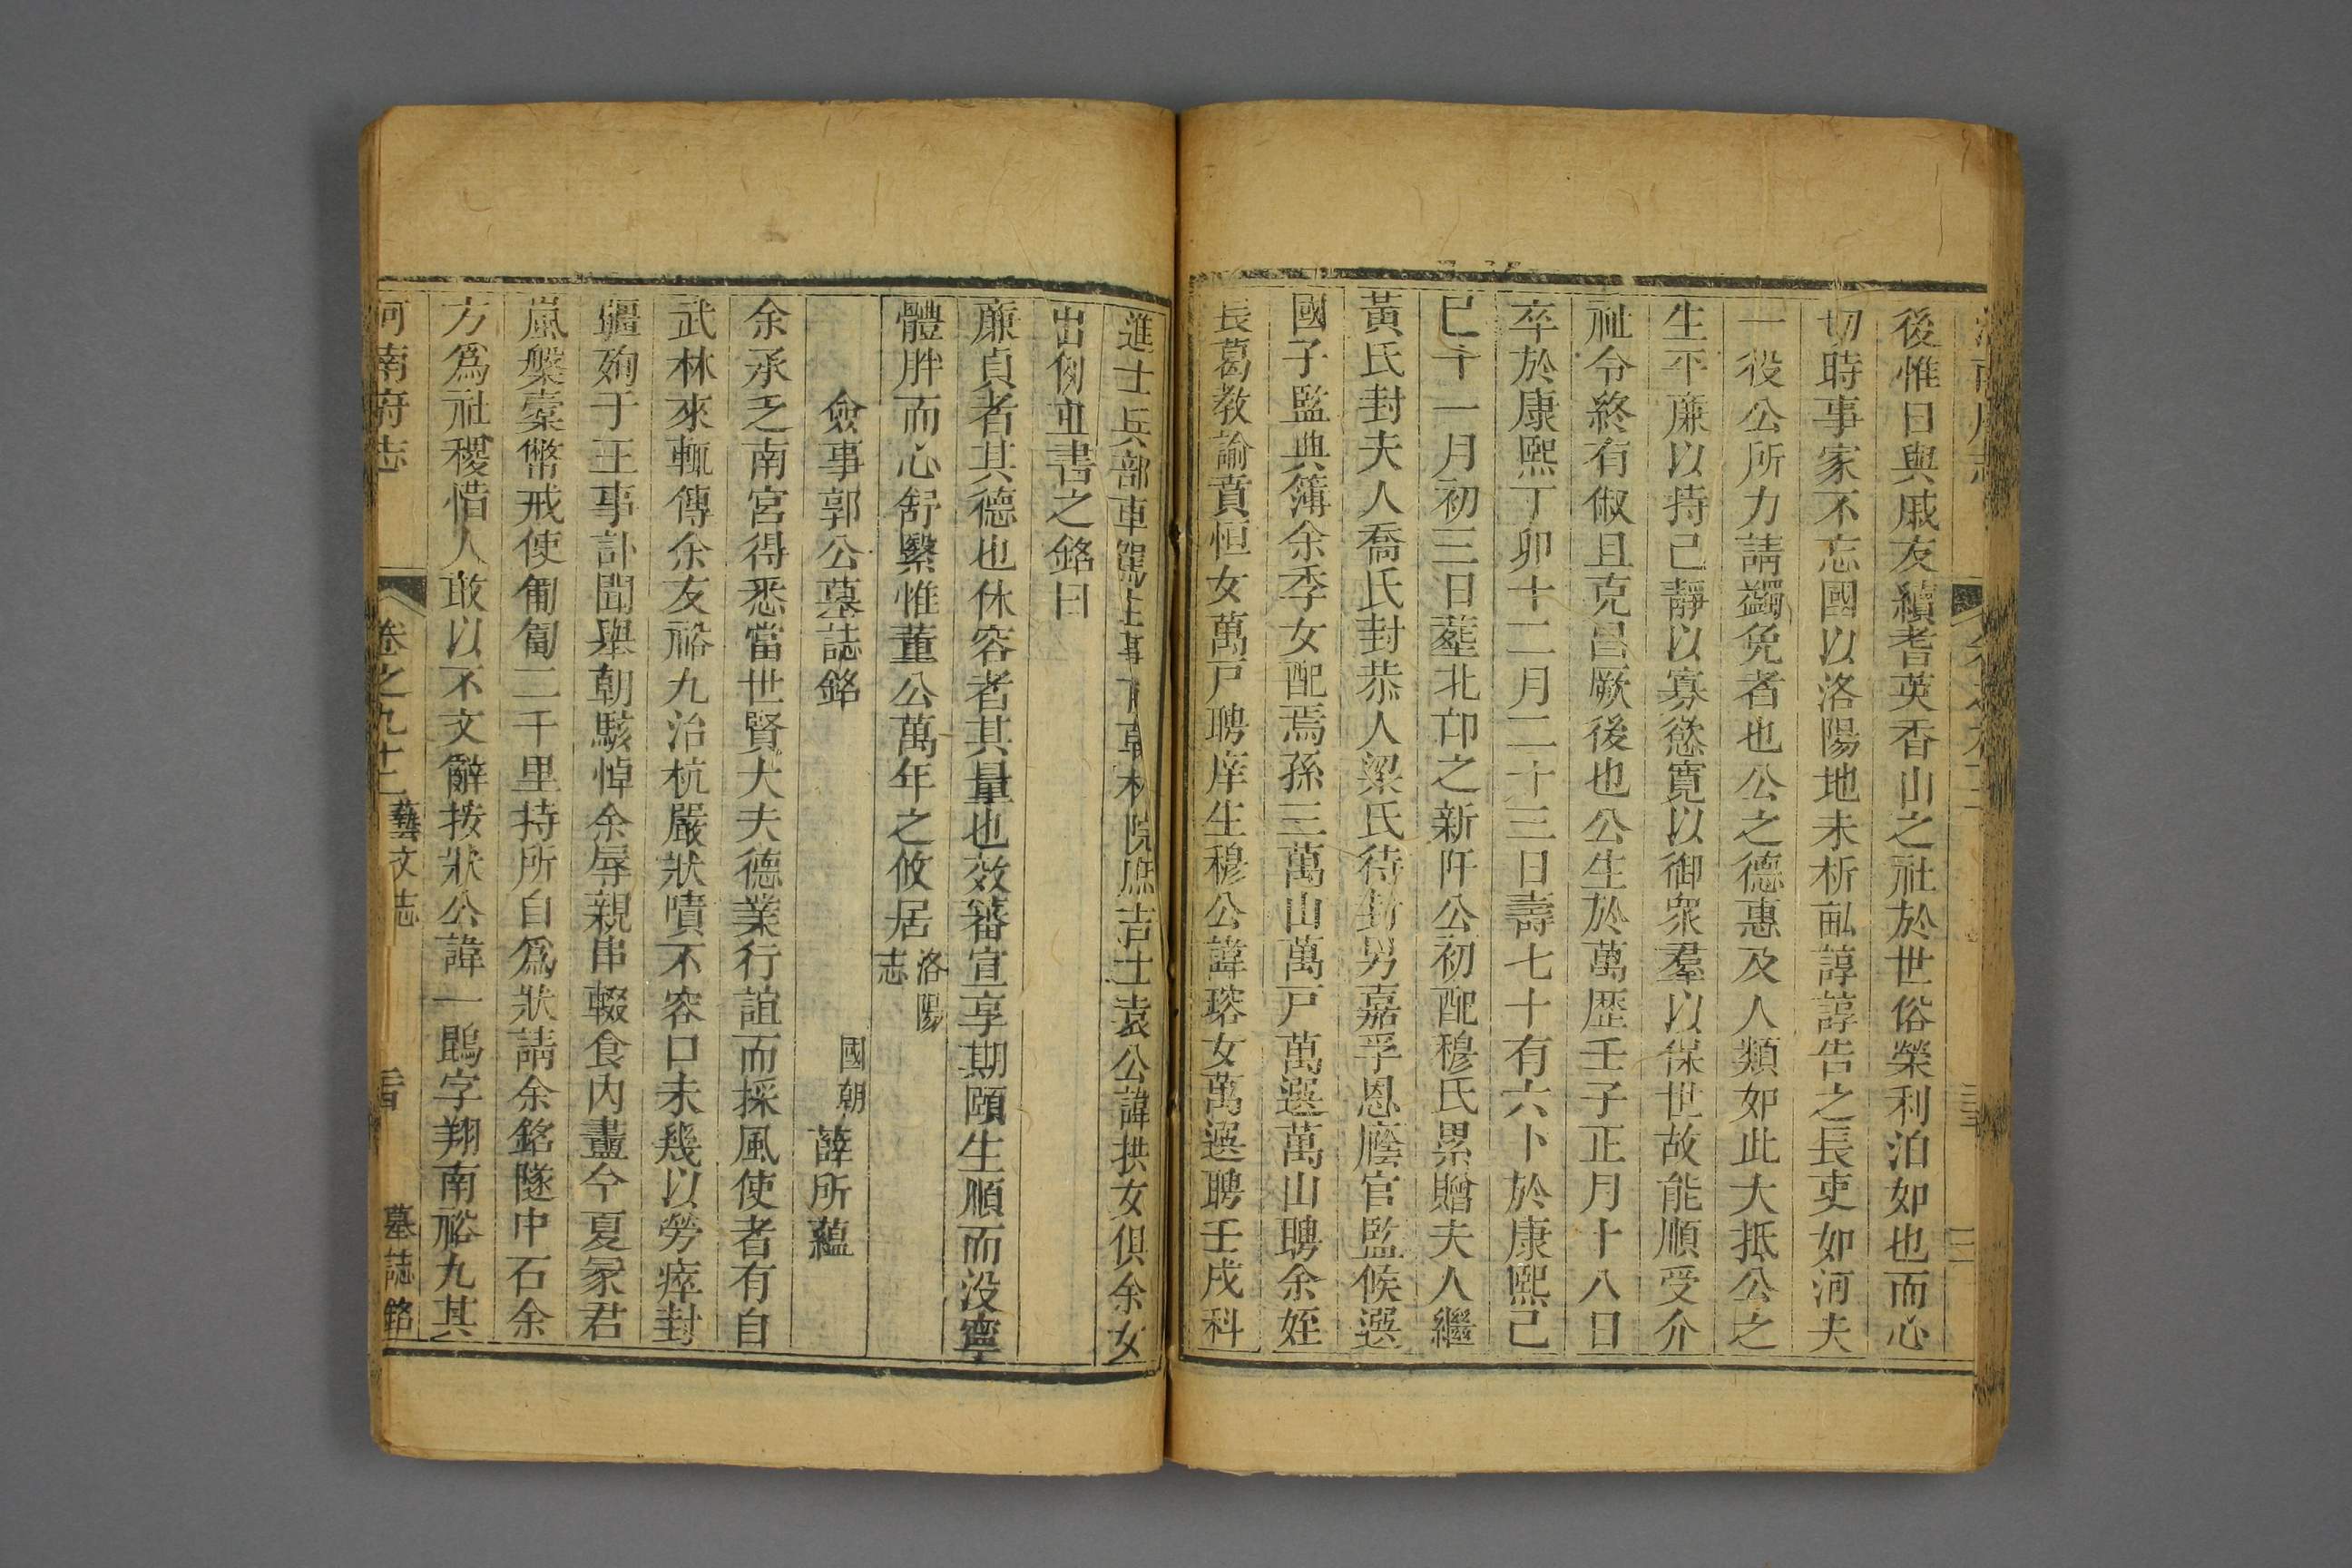 後惟日與戚友續耆英香山之社於世俗榮利泊如也而心
切時事家不忘國以洛陽地未析畝諄諄告之長吏如河夫
一役公所力請蠲免者也公之德惠及人類如此大抵公之
生平廉以持己靜以寡慾寬以御衆羣以保世故能順受介
祉令終有俶且克昌厥後也公生於萬歷壬子正月十八日
卒於康熙丁卯十二月二十三日壽七十有六卜於康熙己
巳十一月初三日葬北邙之新阡公初配穆氏累贈夫人繼
黃氏封夫人喬氏封恭人梁氏待封男嘉孚恩廕官監候選
國子監典簿余季女配焉孫三萬山萬戸萬選萬山聘余姪
長葛教諭賁恒女萬戸聘庠生穆公諱瑢女萬選聘壬戌科
進士兵部車駕主事前翰林院庶吉士袁公諱拱女俱余女
出例並書之銘曰
廉貞者其德也休容者其量也效蕃宣享期頤生順而没寧
體胖而心舒繄惟董公萬年之攸居洛陽志
僉事郭公墓誌銘 國朝薛所蘊
余承乏南宮得悉當世賢大夫德業行誼而採風使者有自
武林來輒傳余友裕九治杭嚴狀嘖不容口未幾以勞瘁封
疆殉于王事訃聞舉朝駭悼余辱親串輟食內盡今夏冢君
嵐槃槖幣戒使匍匐二千里持所自爲狀請余銘隧中石余
方爲社稷惜人敢以不文辭按狀公諱一鶚字翔南裕九其
河南府志 卷之九十二 藝文志 墓誌銘